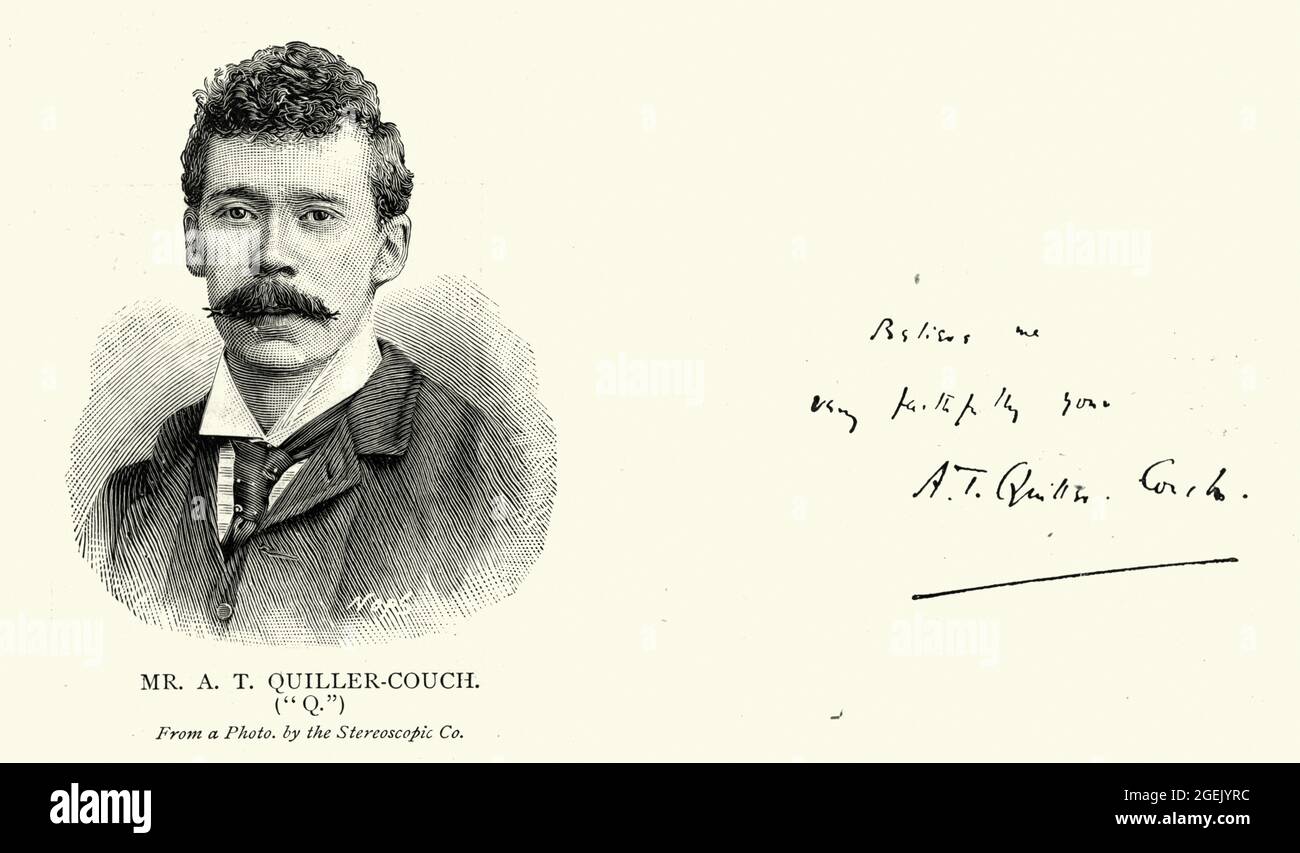 MR. A. T. QUILLER-COUCH.
("Q.")
From a Photo. by the Stereoscopic Co.
Believe me
very faithfully yours
A. T. Quiller-Couch.
alamy
alamy
alamy
alamy
alamy
alamy
Image ID: 2GEJYRC
www.alamy.com